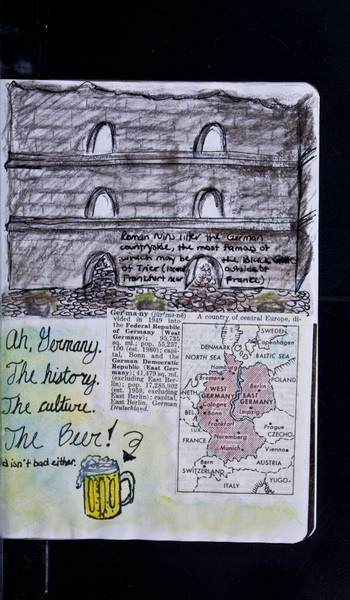 Roman ruins litter the German
countryside, the most famous of
which may be the Black Gate
of Trier
Frankfurt near France)
Ah, Germany.
The history.
The culture.
The Beer!
isn't bad either.
Ger·ma·ny
vided in 1949 into
the Federal Republic
of Germany (West
Germany), 95,735
sq. mi.; pop. 55,257,
100 (est. 1960); capi-
tal, Bonn and the
German Democratic
Republic (East Ger-
many); 41,479 sq. mi.
(excluding East Ber-
lin); pop. 17,285,902
(est. 1959, excluding
East Berlin); capital,
East Berlin. German
Deutschland.
A country of central Europe, di-
SWEDEN
Copenhagen
DENMARK
NORTH SEA
BALTIC SEA
Hamburg
Bremen
Berlin
POLAND
NETH.
WEST
GERMANY
EAST
GERMANY
Cologne
Leipzig
BEL.
Bonn
Frankfurt
LUX.
Prague
CZECHO.
Nuremberg
FRANCE
Munich
Vienna
Bern
AUSTRIA
SWITZERLAND
ITALY
YUGO.